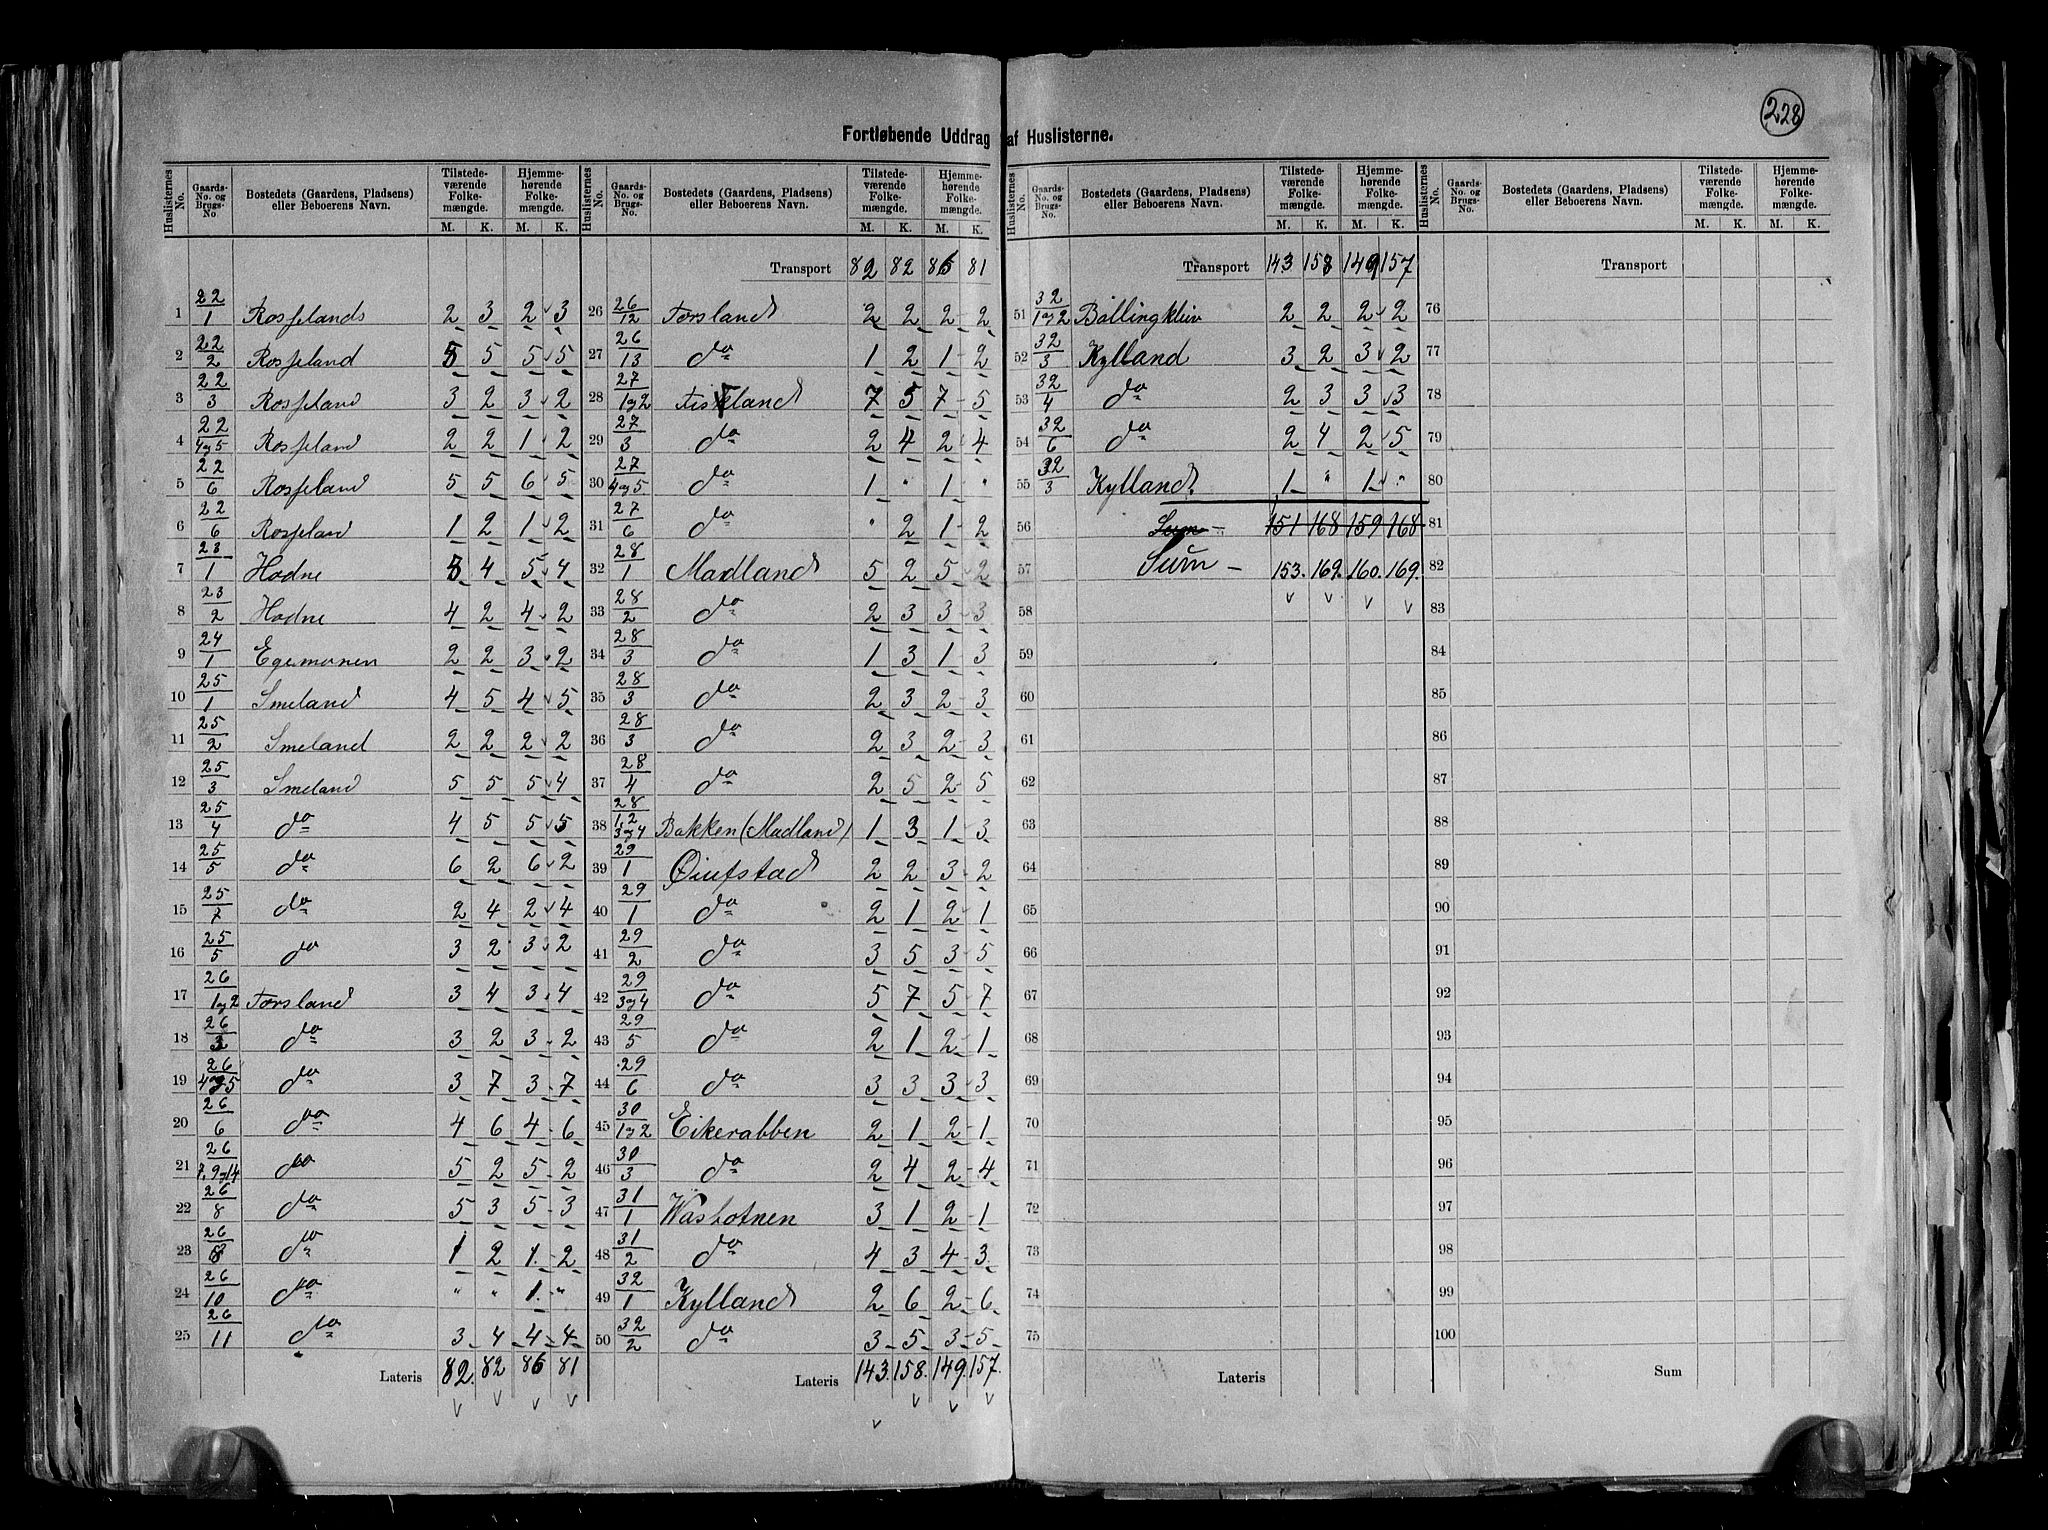 228
Fortløbende Uddrag af Huslisterne.
Huslisternes No. Gaards-No. og Brugs-No. Bostedets (Gaardens, Pladsens) eller Beboerens Navn. Tilstedeværende Folkemængde. M. K. Hjemmehørende Folkemængde. M. K.
1 22/1 Rosseland 2 3 2 3
2 22/2 Rosseland 5 5 5 5
3 22/3 Rosseland 3 2 3 2
4 22/4og5 Rosseland 2 2 1 2
5 22/6 Rosseland 5 5 6 5
6 22/6 Rosseland 1 2 1 2
7 23/1 Hodne 4 5 4
8 23/2 Hodne 4 2 4 2
9 24/1 Egemonen 2 2 3 2
10 25/1 Smeland 4 5 4 5
11 25/2 Smeland 2 2 2 2
12 25/3 Smeland 5 5 5 4
13 25/4 do 4 5 5 5
14 25/5 do 6 2 6 2
15 25/7 do 2 4 2 4
16 25/5 do 3 2 3 2
17 26/1og2 Torsland 3 4 3 4
18 26/3 do 3 2 3 2
19 26/4og5 do 3 7 3 7
20 26/6 do 4 6 4 6
21 26/7, 9og14 do 5 2 5 2
22 26/8 do 5 3 5 3
23 26/8 do 1 2 1 2
24 26/10 do " " 1 "
25 26/11 do 3 4 4 4
Lateris 82. 82 86 81
Huslisternes No. Gaards-No. og Brugs-No. Bostedets (Gaardens, Pladsens) eller Beboerens Navn. Tilstedeværende Folkemængde. M. K. Hjemmehørende Folkemængde. M. K.
Transport 82 82 86 81
26 26/12 Torsland 2 2 2 2
27 26/13 do 1 2 1 2
28 27/1og2 7 5 7 5
29 27/3 do 2 4 2 4
30 27/4og5 do 1 " 1 "
31 27/6 do " 2 1 2
32 28/1 Madland 5 2 5 2
33 28/2 do 2 3 3 3
34 28/3 do 1 3 1 3
35 28/3 do 2 3 2 3
36 28/3 do 2 3 2 3
37 28/4 do 2 5 2 5
38 28/1,2 3og4 Bakken (Madland) 1 3 1 3
39 29/1 Øiufstad 2 2 3 2
40 29/1 do 2 1 2 1
41 29/2 do 3 5 3 5
42 29/3og4 do 5 7 5 7
43 29/5 do 2 1 2 1
44 29/6 do 3 3 3 3
45 30/1og2 Eikerabben 2 1 2 1
46 30/3 do 2 4 2 4
47 31/1 Wasbotnen 3 1 2 1
48 31/2 do 4 3 4 3
49 32/1 Kylland 2 6 2 6
50 32/2 do 3 5 3 5
Lateris 143. 158. 149. 157.
Huslisternes No. Gaards-No. og Brugs-No. Bostedets (Gaardens, Pladsens) eller Beboerens Navn. Tilstedeværende Folkemængde. M. K. Hjemmehørende Folkemængde. M. K.
Transport 143 158 149 157
51 32/1og2 Bøllingkleiv 2 2 2 2
52 32/3 Kylland 3 2 3 2
53 32/4 do 2 3 3 3
54 32/6 do 2 4 2 5
55 32/3 Kylland. 1 " 1 "
56 Sum - 151 168 159 168
57 Sum - 153. 169. 160. 169.
58
59
60
61
62
63
64
65
66
67
68
69
70
71
72
73
74
75
Lateris
Huslisternes No. Gaards-No. og Brugs-No. Bostedets (Gaardens, Pladsens) eller Beboerens Navn. Tilstedeværende Folkemængde. M. K. Hjemmehørende Folkemængde. M. K.
Transport
76
77
78
79
80
81
82
83
84
85
86
87
88
89
90
91
92
93
94
95
96
97
98
99
100
Sum